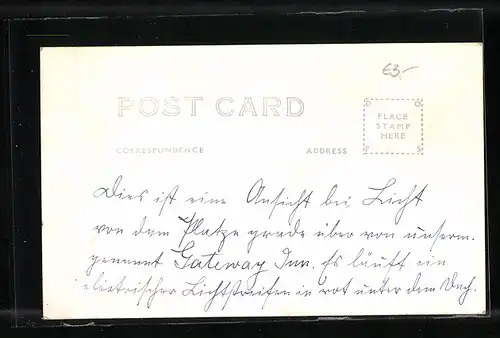 63,-
POST CARD
CORRESPONDENCE ADDRESS
PLACE
STAMP
HERE
Dies ist eine Ansicht bei Licht
von dem Platze grade über von unserm.
genannt Gateway Inn. Es läuft ein
elietrischer Lichtstreifen in rot unter dem Dach.